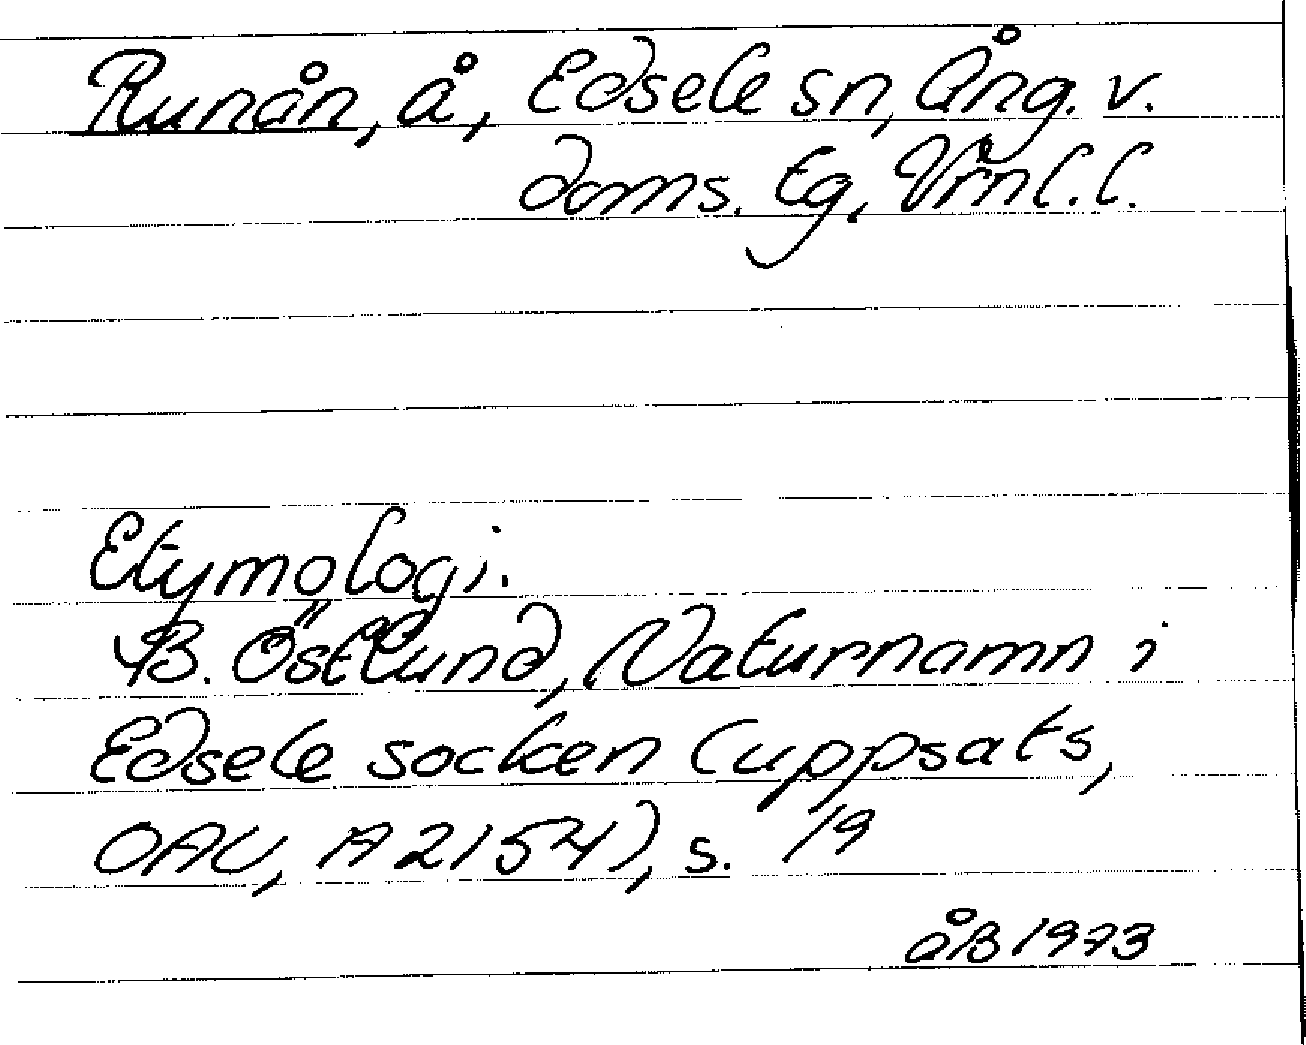 Runån, å, Edsele sn, Ång. v.
doms. tg, Vrnl. l.
Etymologi.
B. Östlund, Naturnamn i
Edsele socken (uppsats,
OAU, A 2154), s. 19
åB 1973